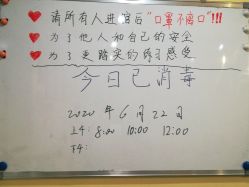 请所有人进馆后"口罩不离口"!!!
为了他人和自己的安全
为了更踏实的练习感受
今日已消毒
2020年6月22日
上午: 8:00 10:00 12:00
下午: